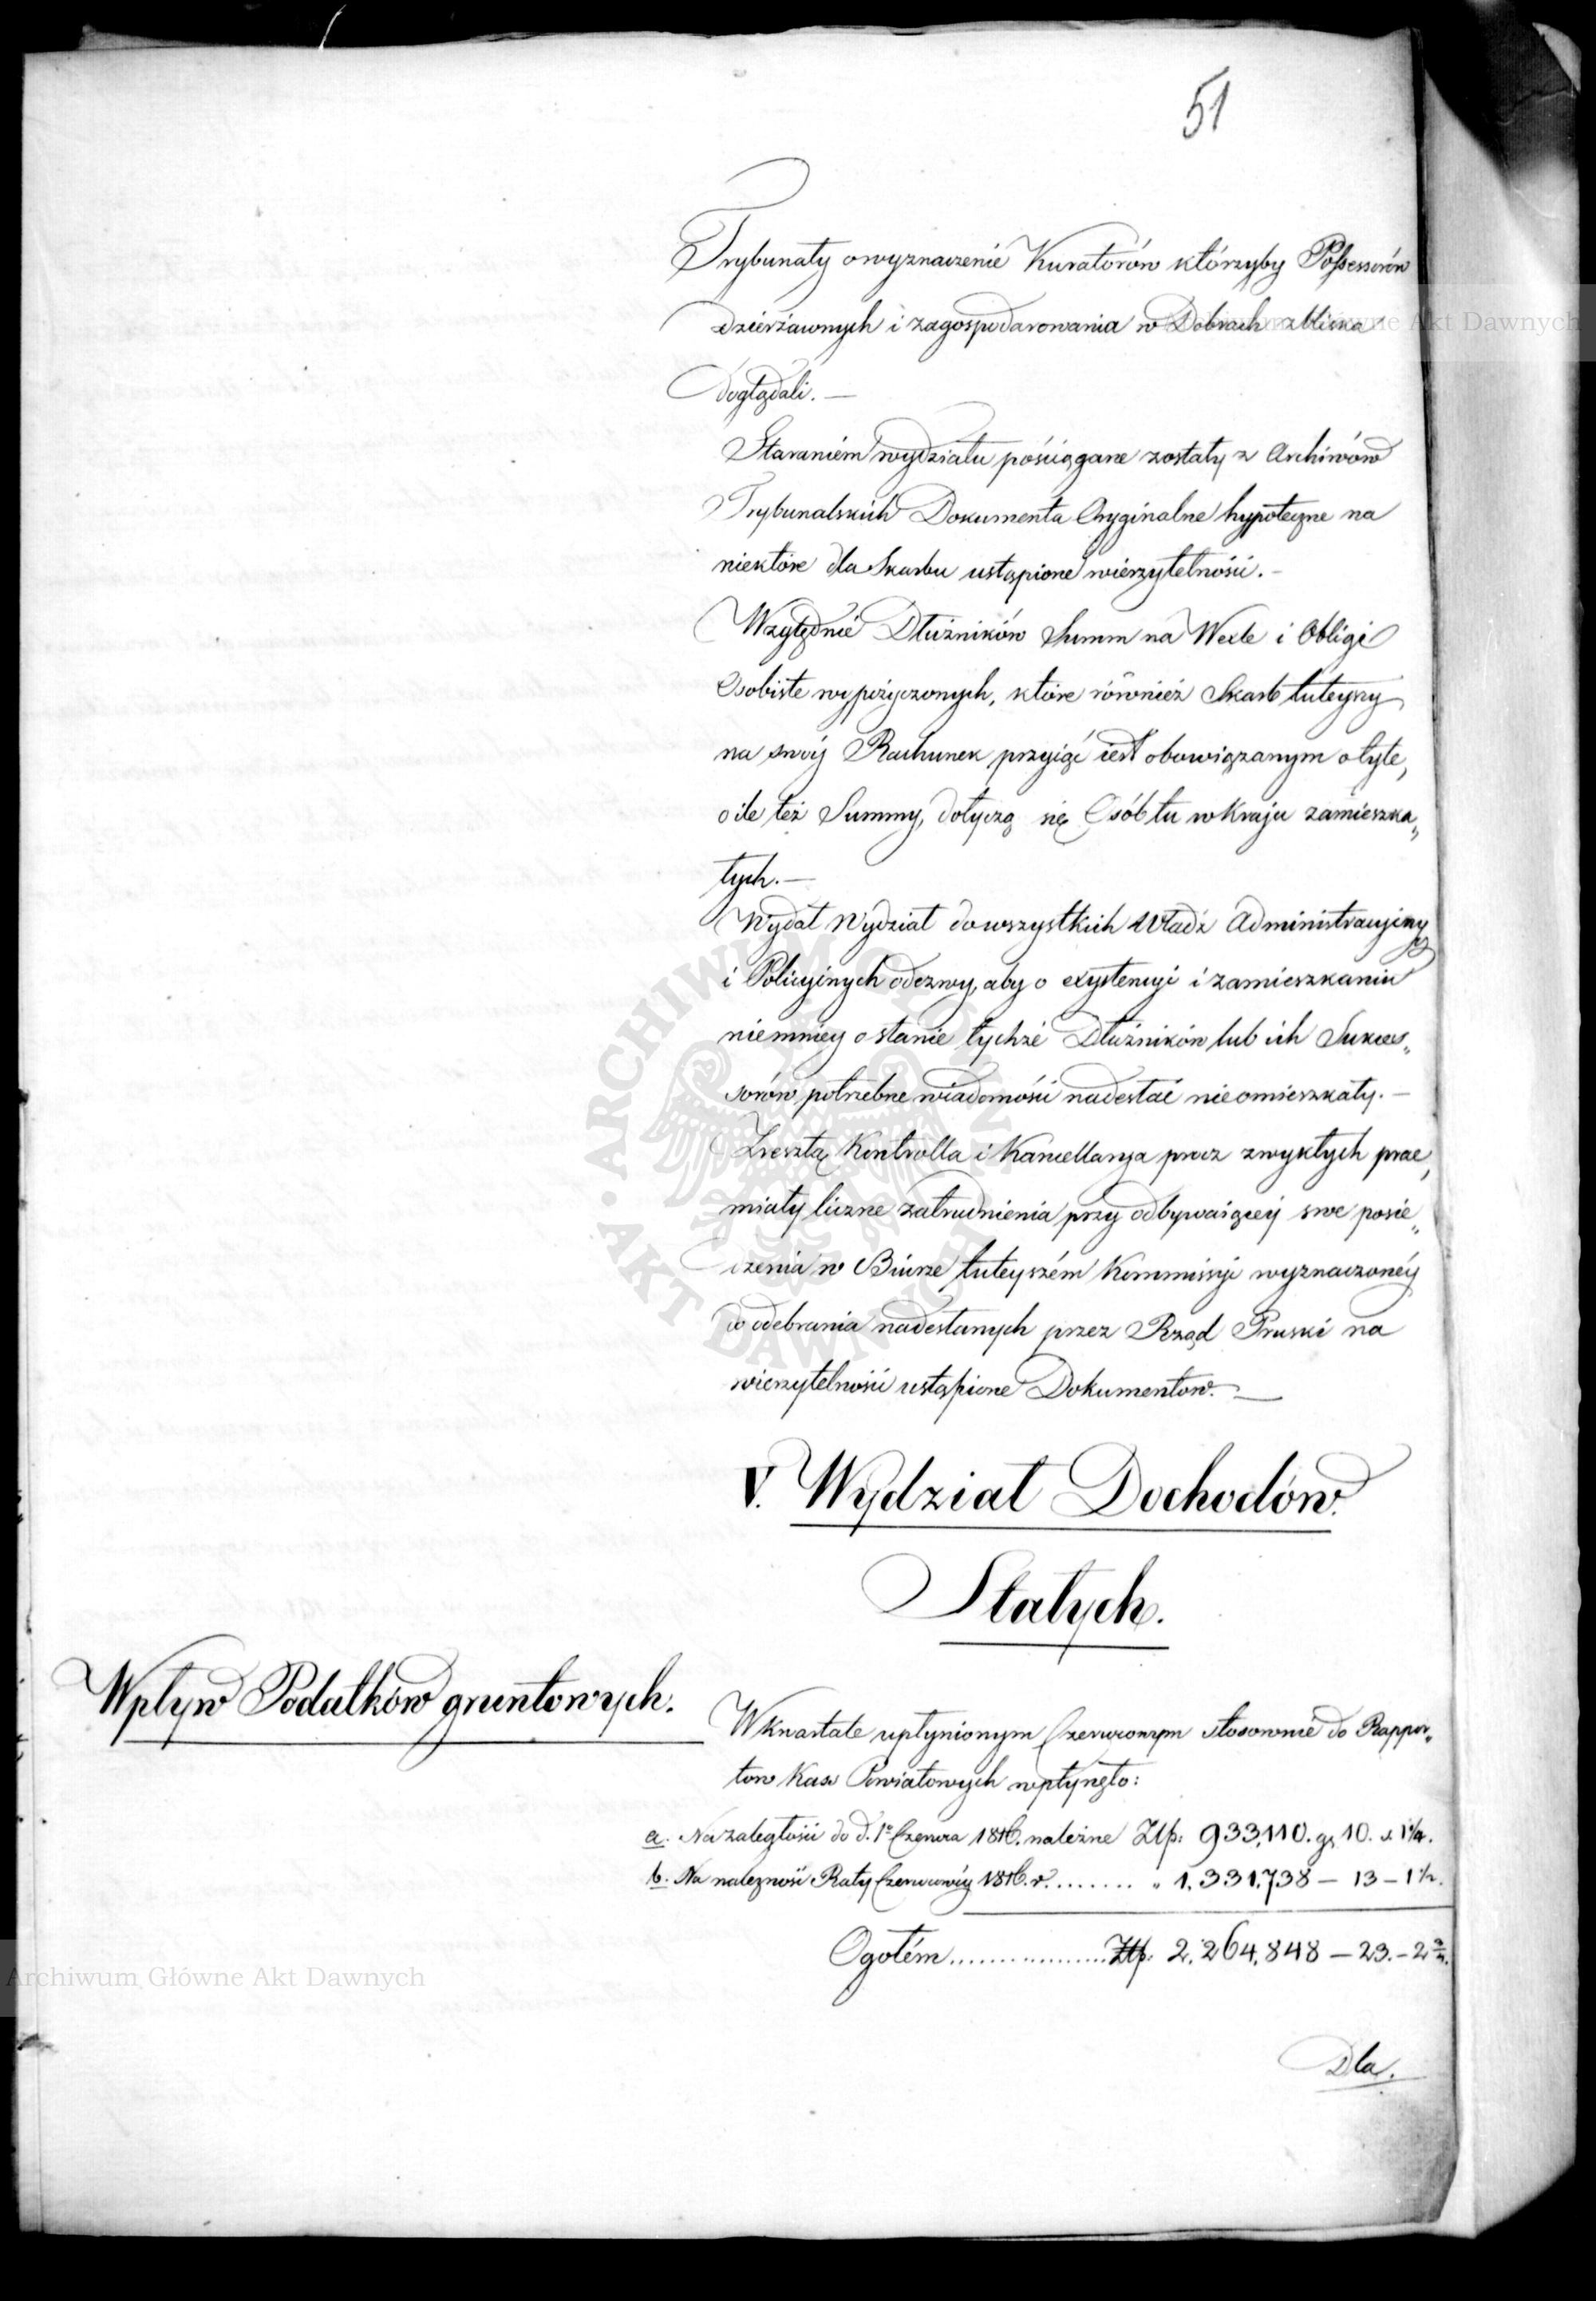 51
Trybunały o wyznaczenie Kuratorów którzyby Possessorów
dzierżawnych i zagospodarowania w Dobrach z bliska
doglądali. —
Staraniém wydziału pościągane zostały z Archiwów
Trybunalskich Dokumenta Oryginalne hypoteczne na
niektóre dla Skarbu ustąpione wierzytelności. —
Względnie Dłużników Summ na Wexle i Obligi
Osobiste wypożyczonych, które również Skarb tuteyszy
na swóy Rachunek przyiąć iest obowiązanym o tyle,
o ile też Summy, dotyczą się Osób tu w Kraju zamieszka„
łych. —
Wydał Wydział do wszystkich Władz Administracyiny
i Policyinych odezwy, aby o exystencyi i zamieszkaniu
niemniey o stanie tychże Dłużników lub ich Sukces„
sorów potrzebne wiadomości nadesłać nieomieszkały. —
Zresztą Kontrolla i Kancellarya prócz zwykłych prac,
miały liczne zatrudnienia przy odbywaiącey swe posie„
dzenia w Biurze tuteyszém Kommissyi wyznaczonéy
do odebrania nadesłanych przez Rząd Pruski na
wierzytelności ustąpione Dokumentow. —
V. Wydział Dochodów
Stałych.
Wpływ Podatków gruntowych.
W Kwartale upłynionym Czerwcowym stosownie do Rappor„
tow Kass Powiatowych wpłynęło:
a. Na zaległości do d. 1º Czerwca 1816. należne Złp: 933,110. gr 10. s. 1¼.
b. Na należność Raty Czerwcowéy 1816. r. ........ „ 1,331,738 — 13 — 1½.
Ogołém ................ Złp. 2,264,848 — 23. — 2¾.
Dla.
Archiwum Główne Akt Dawnych
Archiwum Główne Akt Dawnych
ARCHIWUM GŁÓWNE AKT DAWNYCH